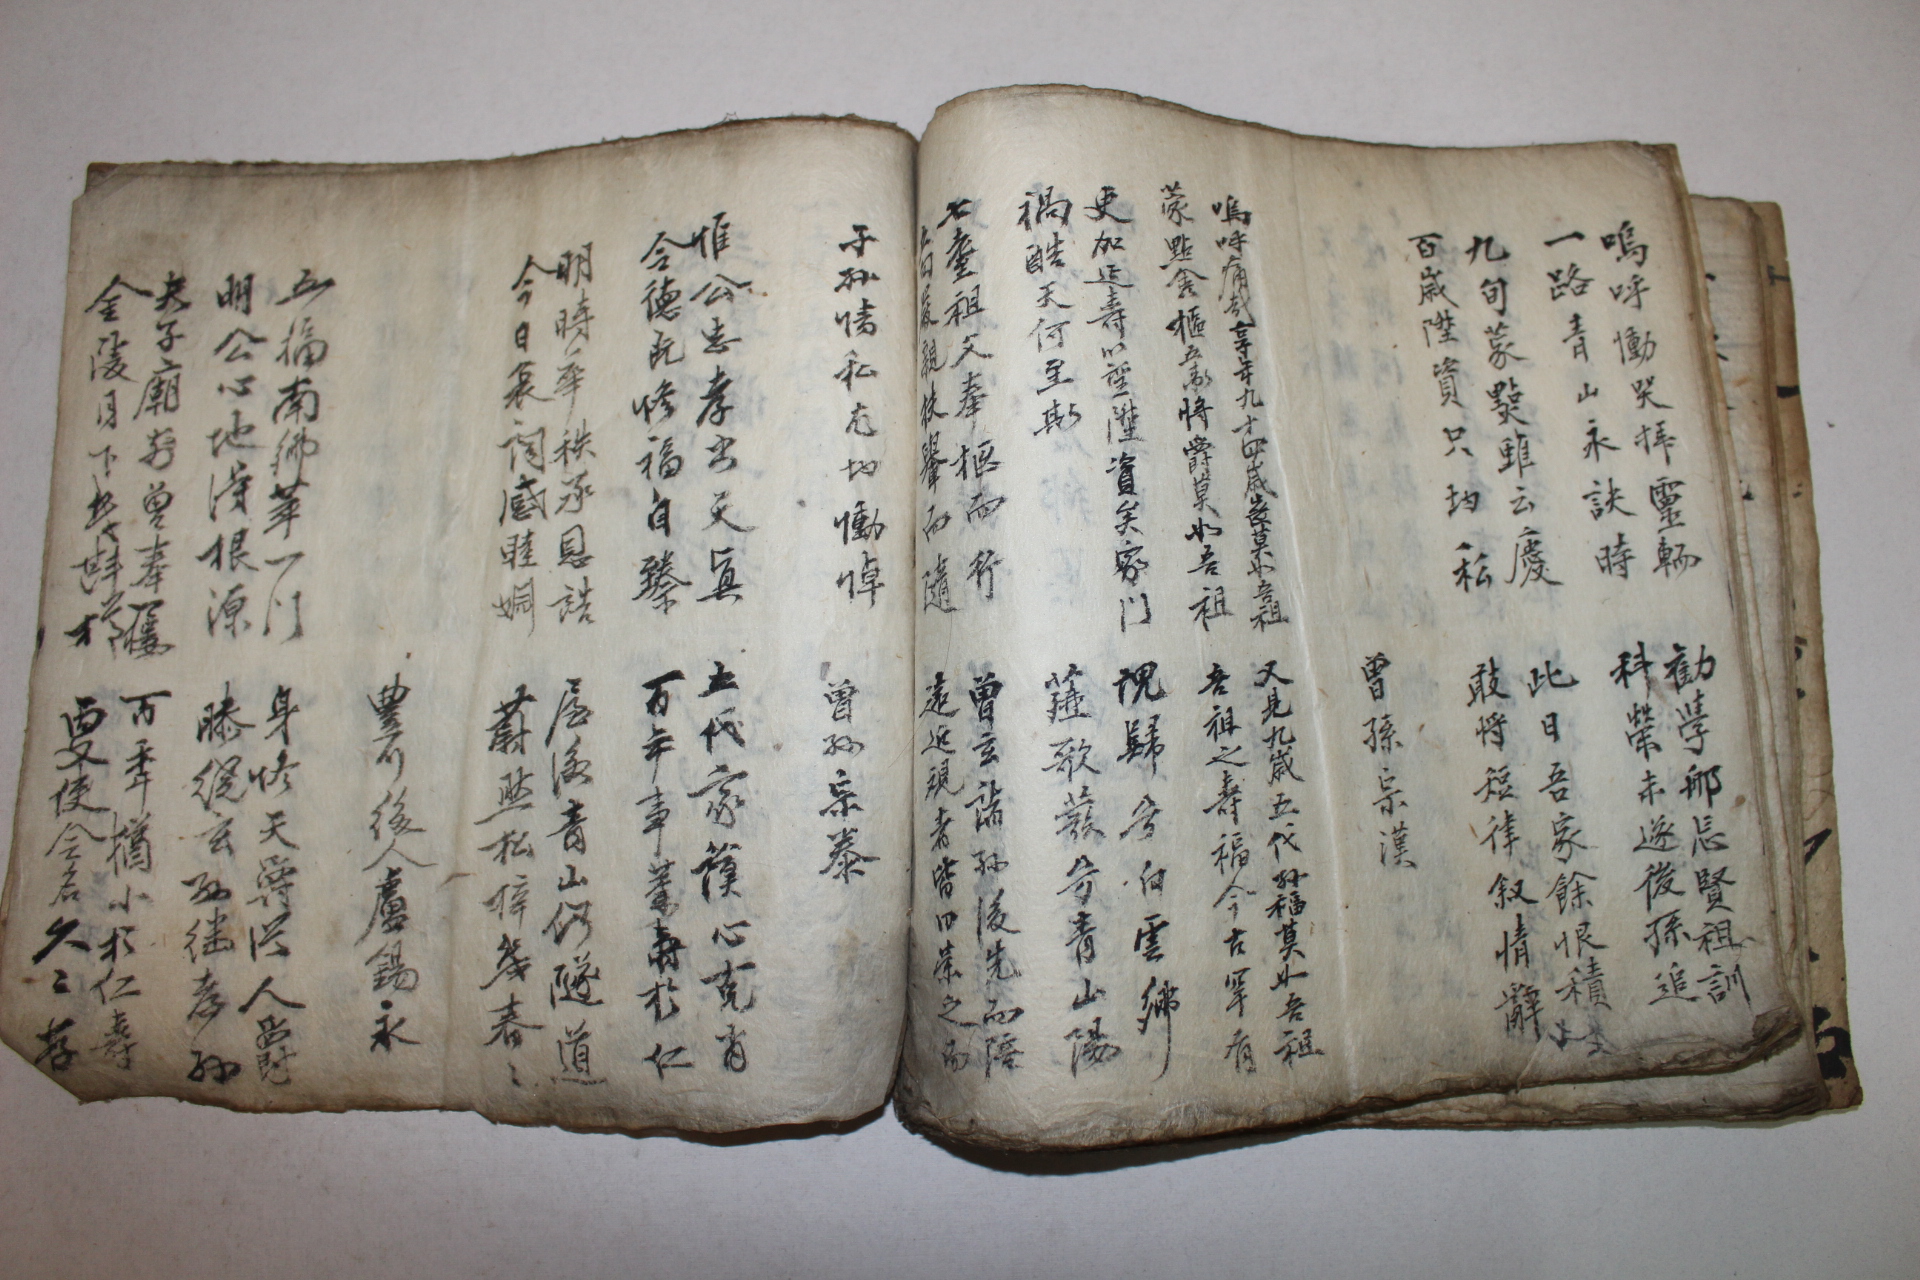 嗚呼慟哭拜靈輀
勸學那忘賢祖訓
一路青山永訣時
科榮未遂後孫追
九旬蒙點雖云慶
此日吾家餘恨積
百歲陞資只切私
敢將短律叙情辭
曾孫宗漢
嗚呼痛哉享年九十四歲歲莫如吾祖
又見九歲五代孫福莫如吾祖
蒙點 樞 將爵莫如吾祖
吾祖之壽福今古罕有
更加延壽以 陞資矣家門
魂歸兮白雲鄉
禍酷天何至斯
薤歌發兮青山陽
七耋祖父奉柩而行
曾玄諸孫後先而陪
六旬嚴親扶轝而隨
遠近觀者皆曰榮之
子孫情私尤切慟悼
曾孫宗泰
惟公忠孝出天眞
五代家謨心克肖
令德旣修福自臻
百年事業壽於仁
明時華秩承恩誥
居後青山仍隧道
今日哀詞感睦姻
蔚然松梓幾春〻
豊川後人盧錫永
五福南鄉萃一門
身修天爵從人爵
明公心地湥根源
滕 玄孫 孝孫
夫子廟前曾奉
百年猶小於仁壽
金陵月下
要使令名久〻存